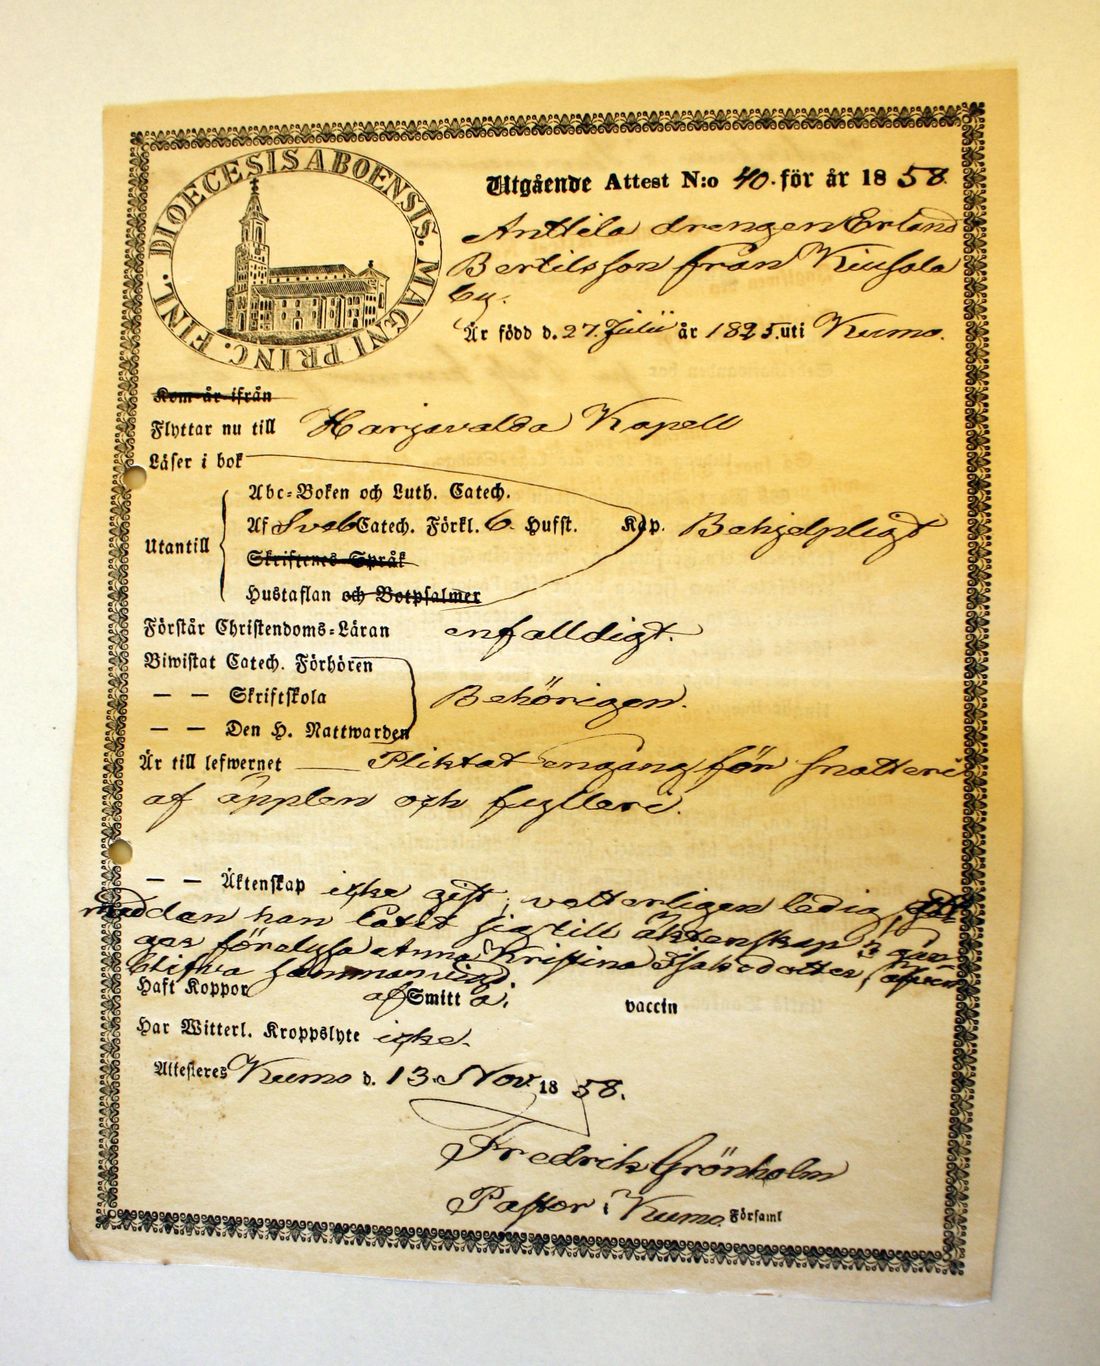 DIOECESIS ABOENSIS. MAGNI PRINC. FINL.
Utgående Attest N:o 40. för år 1858.
Anttila drengen Erland
Bertilsson från Kiusala
by.
Är född d. 27. Julii år 1825. uti Kumo.
Kom år ifrån
Flyttar nu till Harjavalda Kapell
Läser i bok
Abc-Boken och Luth. Catech.
Af Sveb Catech. Förkl. 6. Hufst. Kap. Behjelpligt
Utantill
Skriftenes Språk
Hustaflan och Botpsalmer
Förstår Christendoms-Läran enfalldigt.
Biwistat Catech. Förhören
— — Skriftskola Behörigen.
— — Den H. Nattwarden
Är till lefwernet — Pliktat engång för snatteri
af äpplen och fylleri.
— — Äktenskap icke gift, vetterligen ledig,
meddan han låtit sig till äktenskap 3 gån
ger förelysa Anna Kristina Isaksdotter,
blifva
Haft Koppor af Smitta. vaccin
Har Witterl. Kroppslyte icke.
Attesteres Kumo d. 13 Nov. 1858.
Fredrik Grönholm
Pastor i Kumo Församl